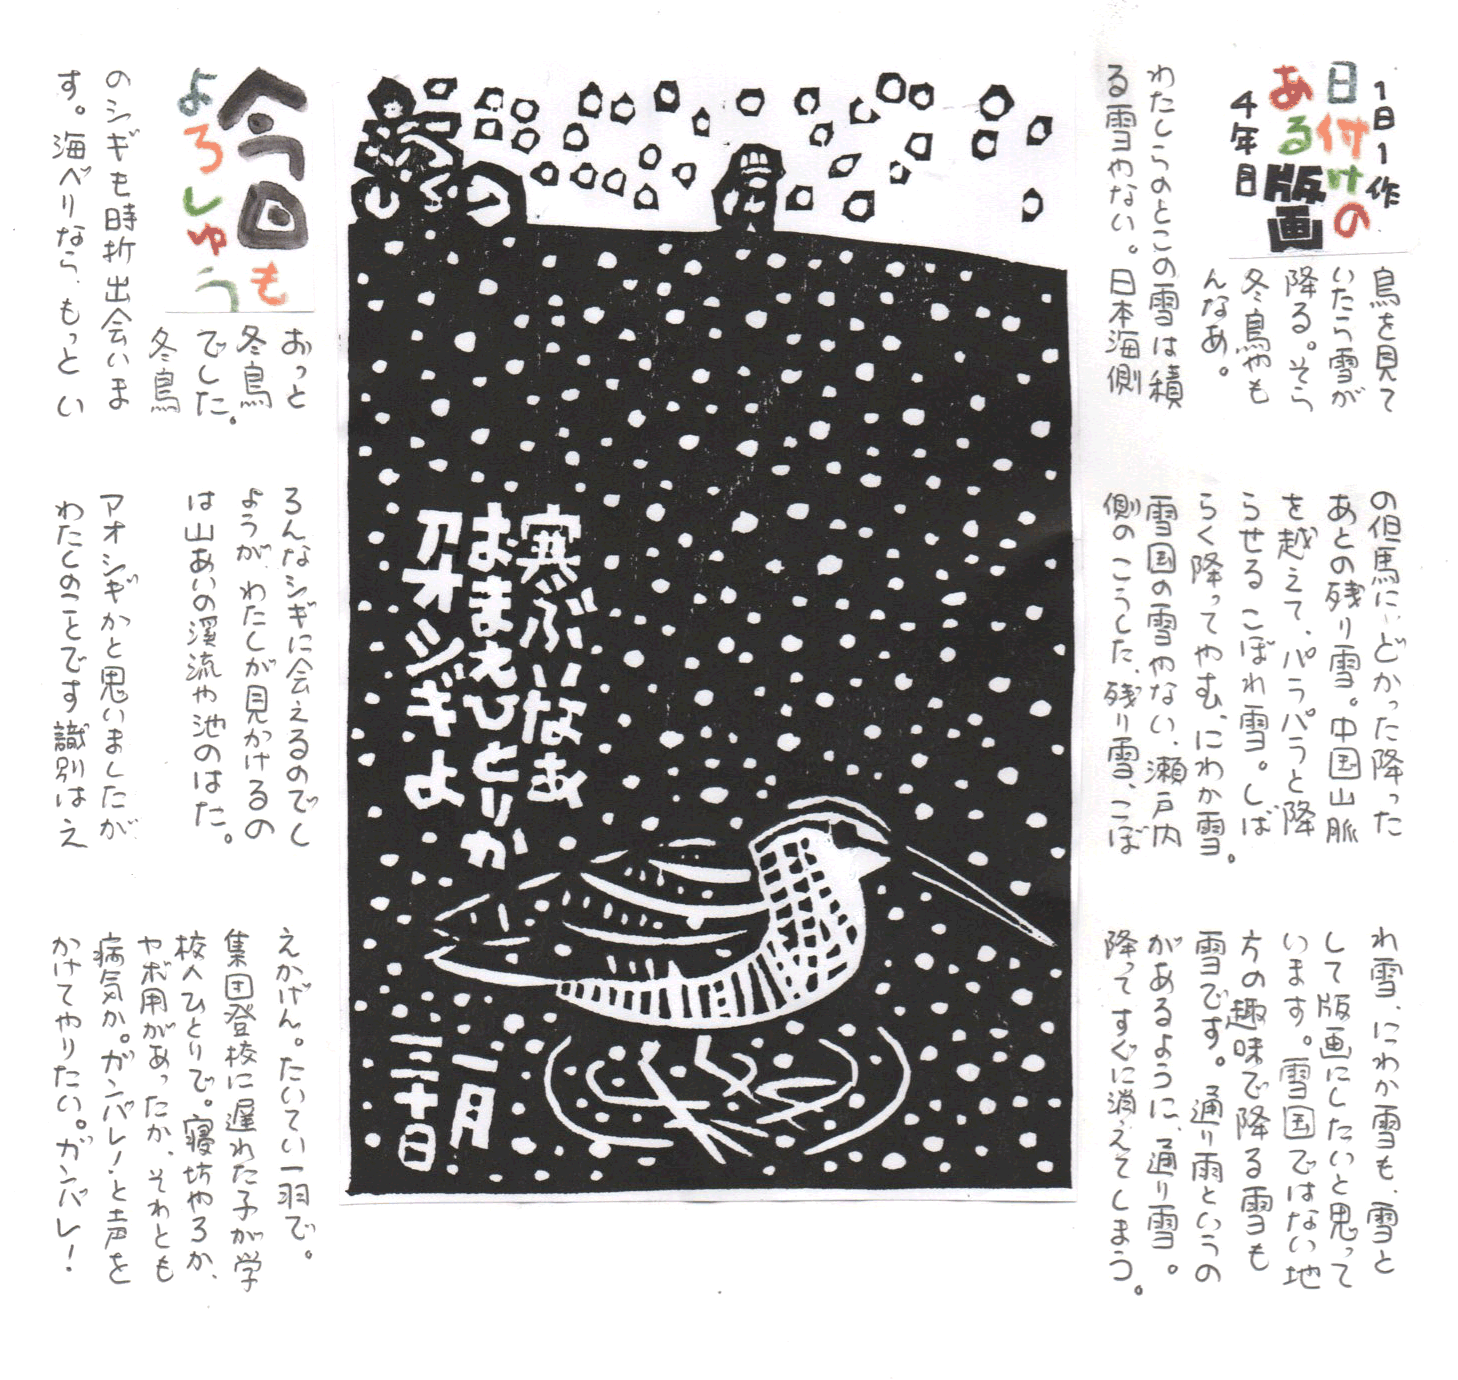 1日1作
日付けの
ある版画
4年目
鳥を見て
いたら雪が
降る。そら
冬鳥やも
んなあ。
わたしらのとこの雪は積
る雪やない。日本海側
の但馬に、どかった降った
あとの残り雪。中国山脈
を越えて、パラパラと降
らせるこぼれ雪。しば
らく降ってやむ、にわか雪。
雪国の雪やない、瀬戸内
側のこうした、残り雪、こぼ
れ雪、にわか雪も、雪と
して版画にしたいと思って
います。雪国ではない地
方の趣味で降る雪も
雪です。通り雨というの
があるように、通り雪。
降ってすぐに消えてしまう。
寒ぶいなぁ
おまえひとりか
アオシギよ
一月
三十日
今回も
よろしゅう
おっと
冬鳥
でした。
冬鳥
のシギも時折出会いま
す。海べりなら、もっとい
ろんなシギに会えるのでし
ょうが、わたしが見かけるの
は山あいの渓流や池のはた。
アオシギかと思いましたが
わたしのことです識別はえ
えかげん。たいてい一羽で。
集団登校に遅れた子が学
校へひとりで。寝坊やろか、
ヤボ用があったか、それとも
病気か。ガンバレ!と声を
かけてやりたい。ガンバレ!